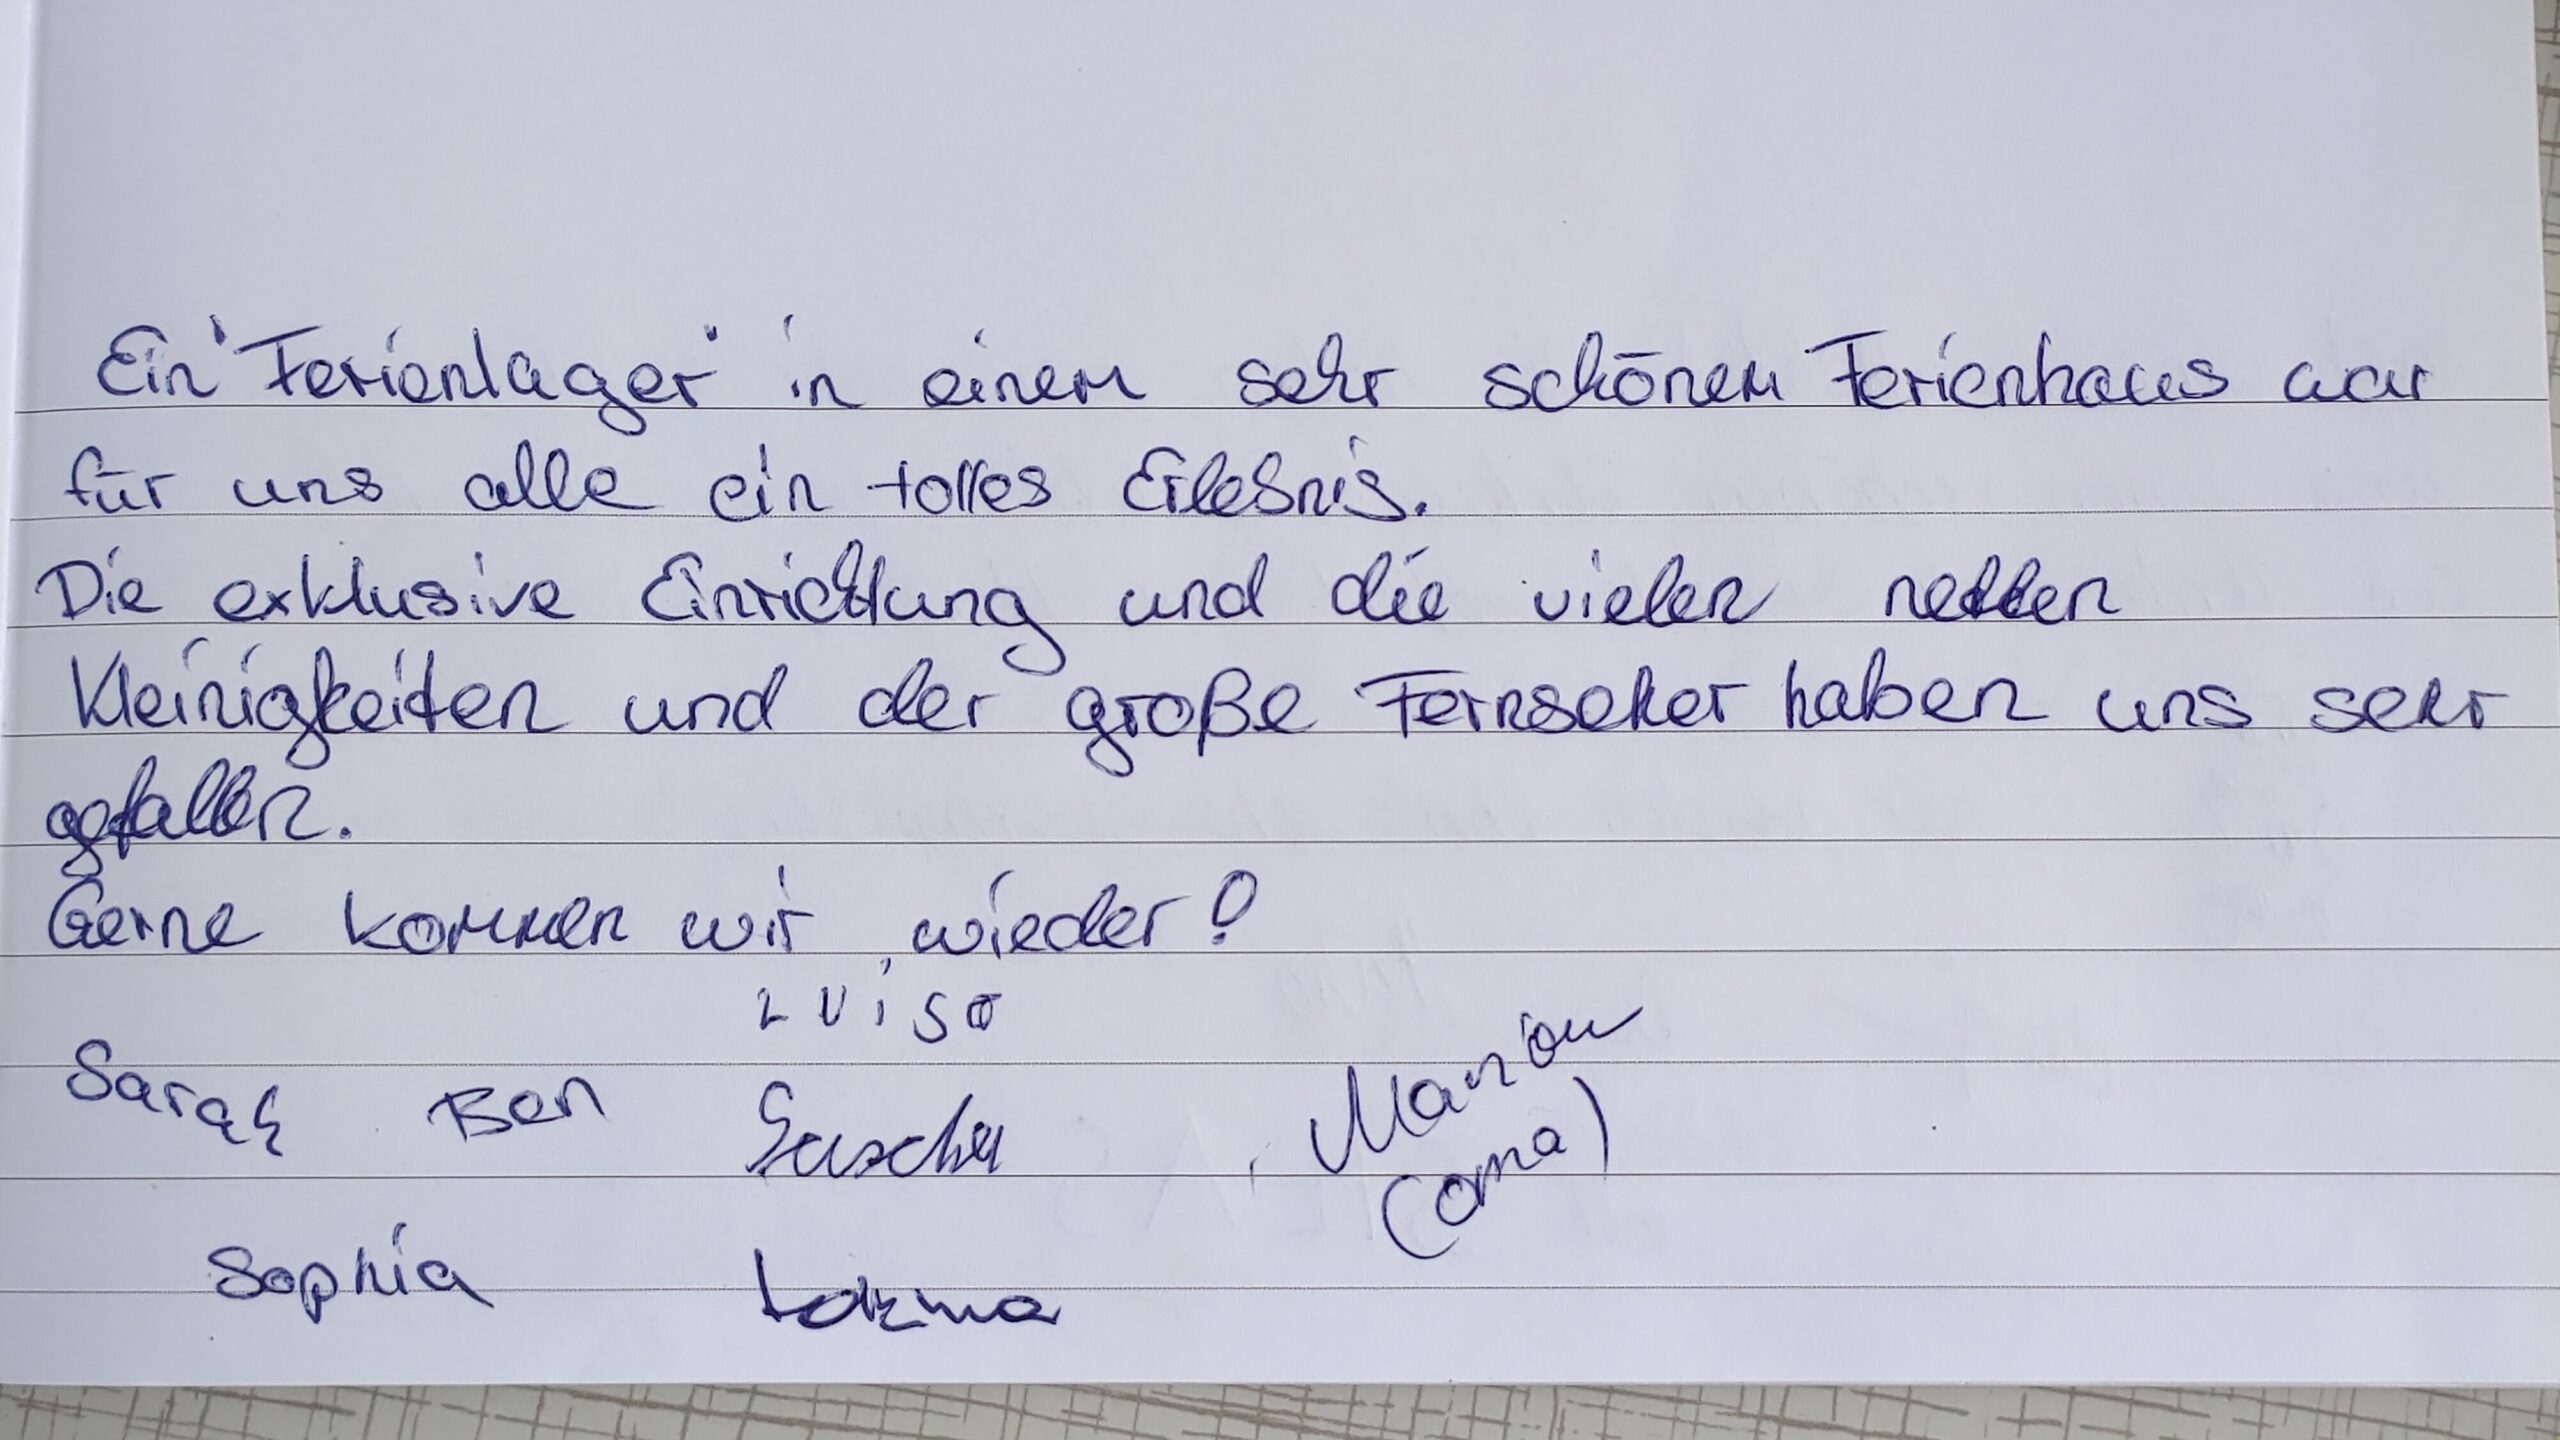 Ein "Ferienlager" in einem sehr schönem Ferienhaus war
für uns alle ein tolles Erlebnis.
Die exklusive Einrichtung und die vielen netten
Kleinigkeiten und der große Fernseher haben uns sehr
gefallen.
Gerne kommen wir wieder!
Luisa
Sarah Ben Sascha Marion
(oma)
Sophia